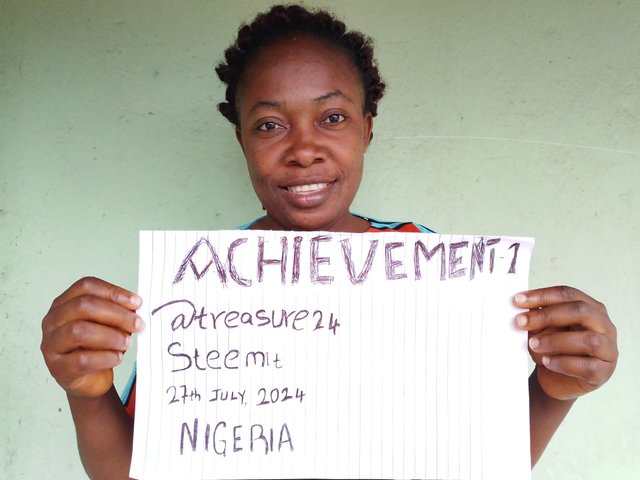 ACHIEVEMENT-1
@treasure24
Steemit
27th JULY, 2024
NIGERIA